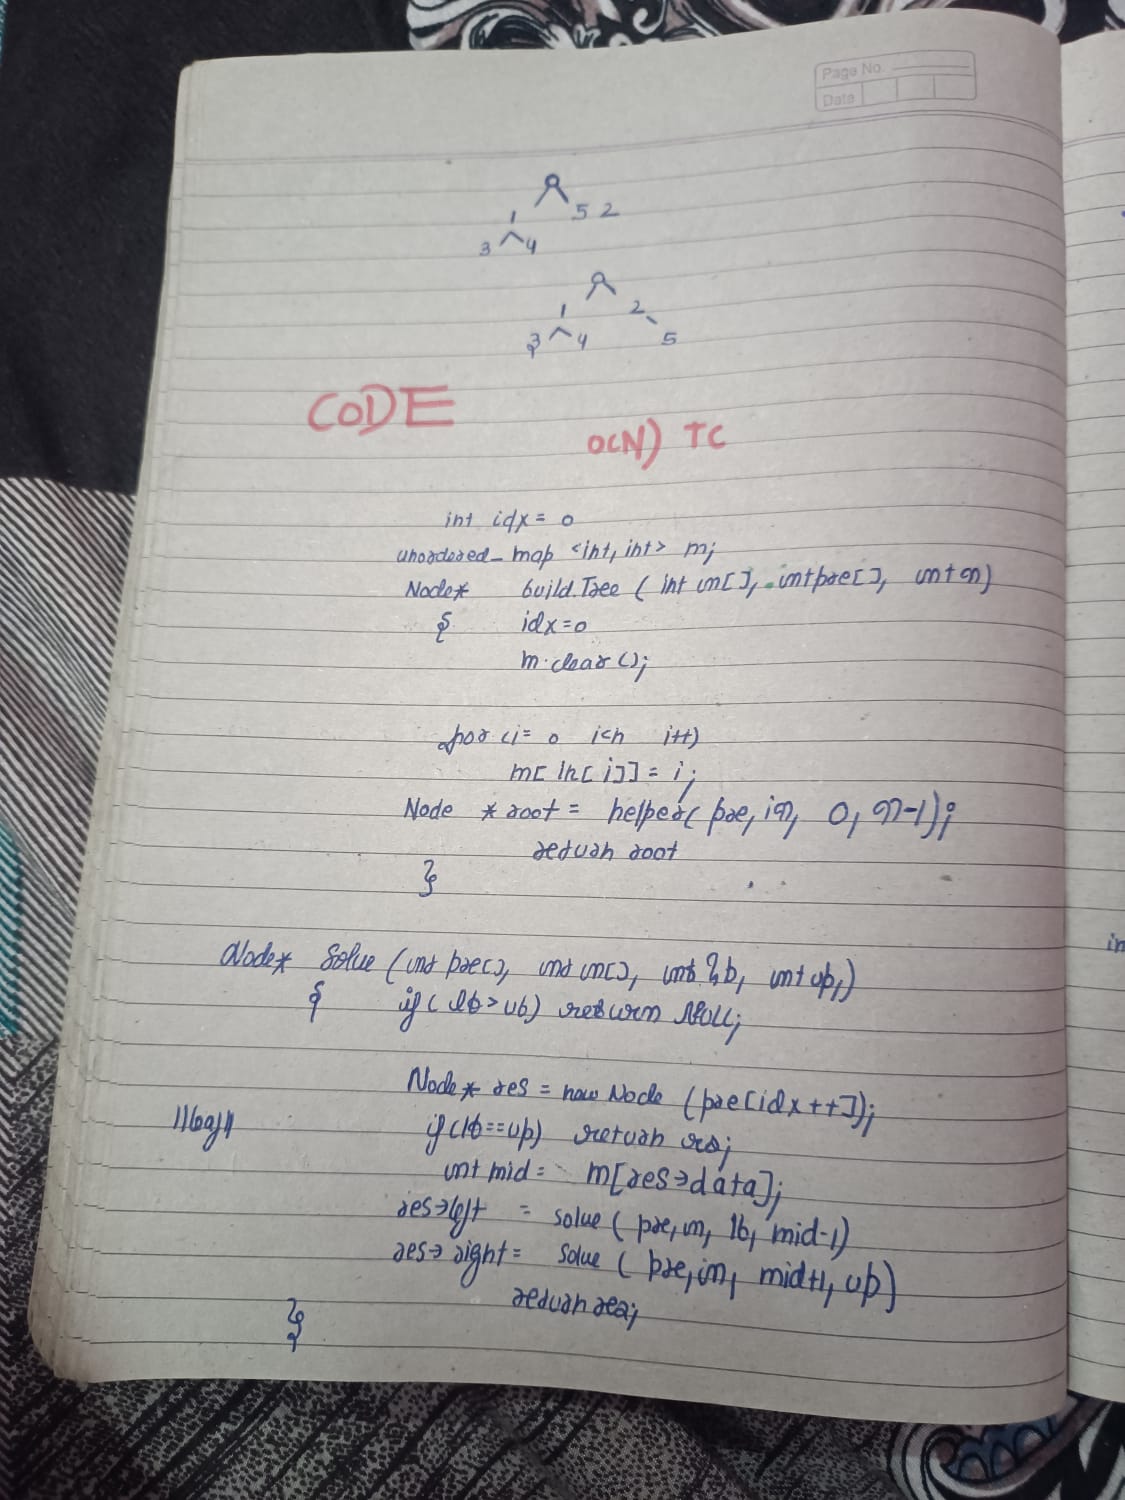 Page No.
Date
5 2
1
3 4
1 2
3 4 5
CODE
O(N) TC
int idx = 0
unordered_map <int, int> m;
Node* build.Tree ( int in[], int pre[], int n)
{ idx=0
m.clear();
for (i= 0 i<n i++)
m[ in[ i ]] = i;
Node * root = helper( pre, in, 0, n-1);
return root
}
Node* Solve (int pre[], int in[], int lb, int ub,)
{ if ( lb > ub) return NULL;
Node* res = new Node (pre[idx++]);
if (lb==ub) return res;
int mid = m[res->data];
res->left = solve ( pre, in, lb, mid-1)
res-> right = solve ( pre, in, mid+1, ub)
return res;
}